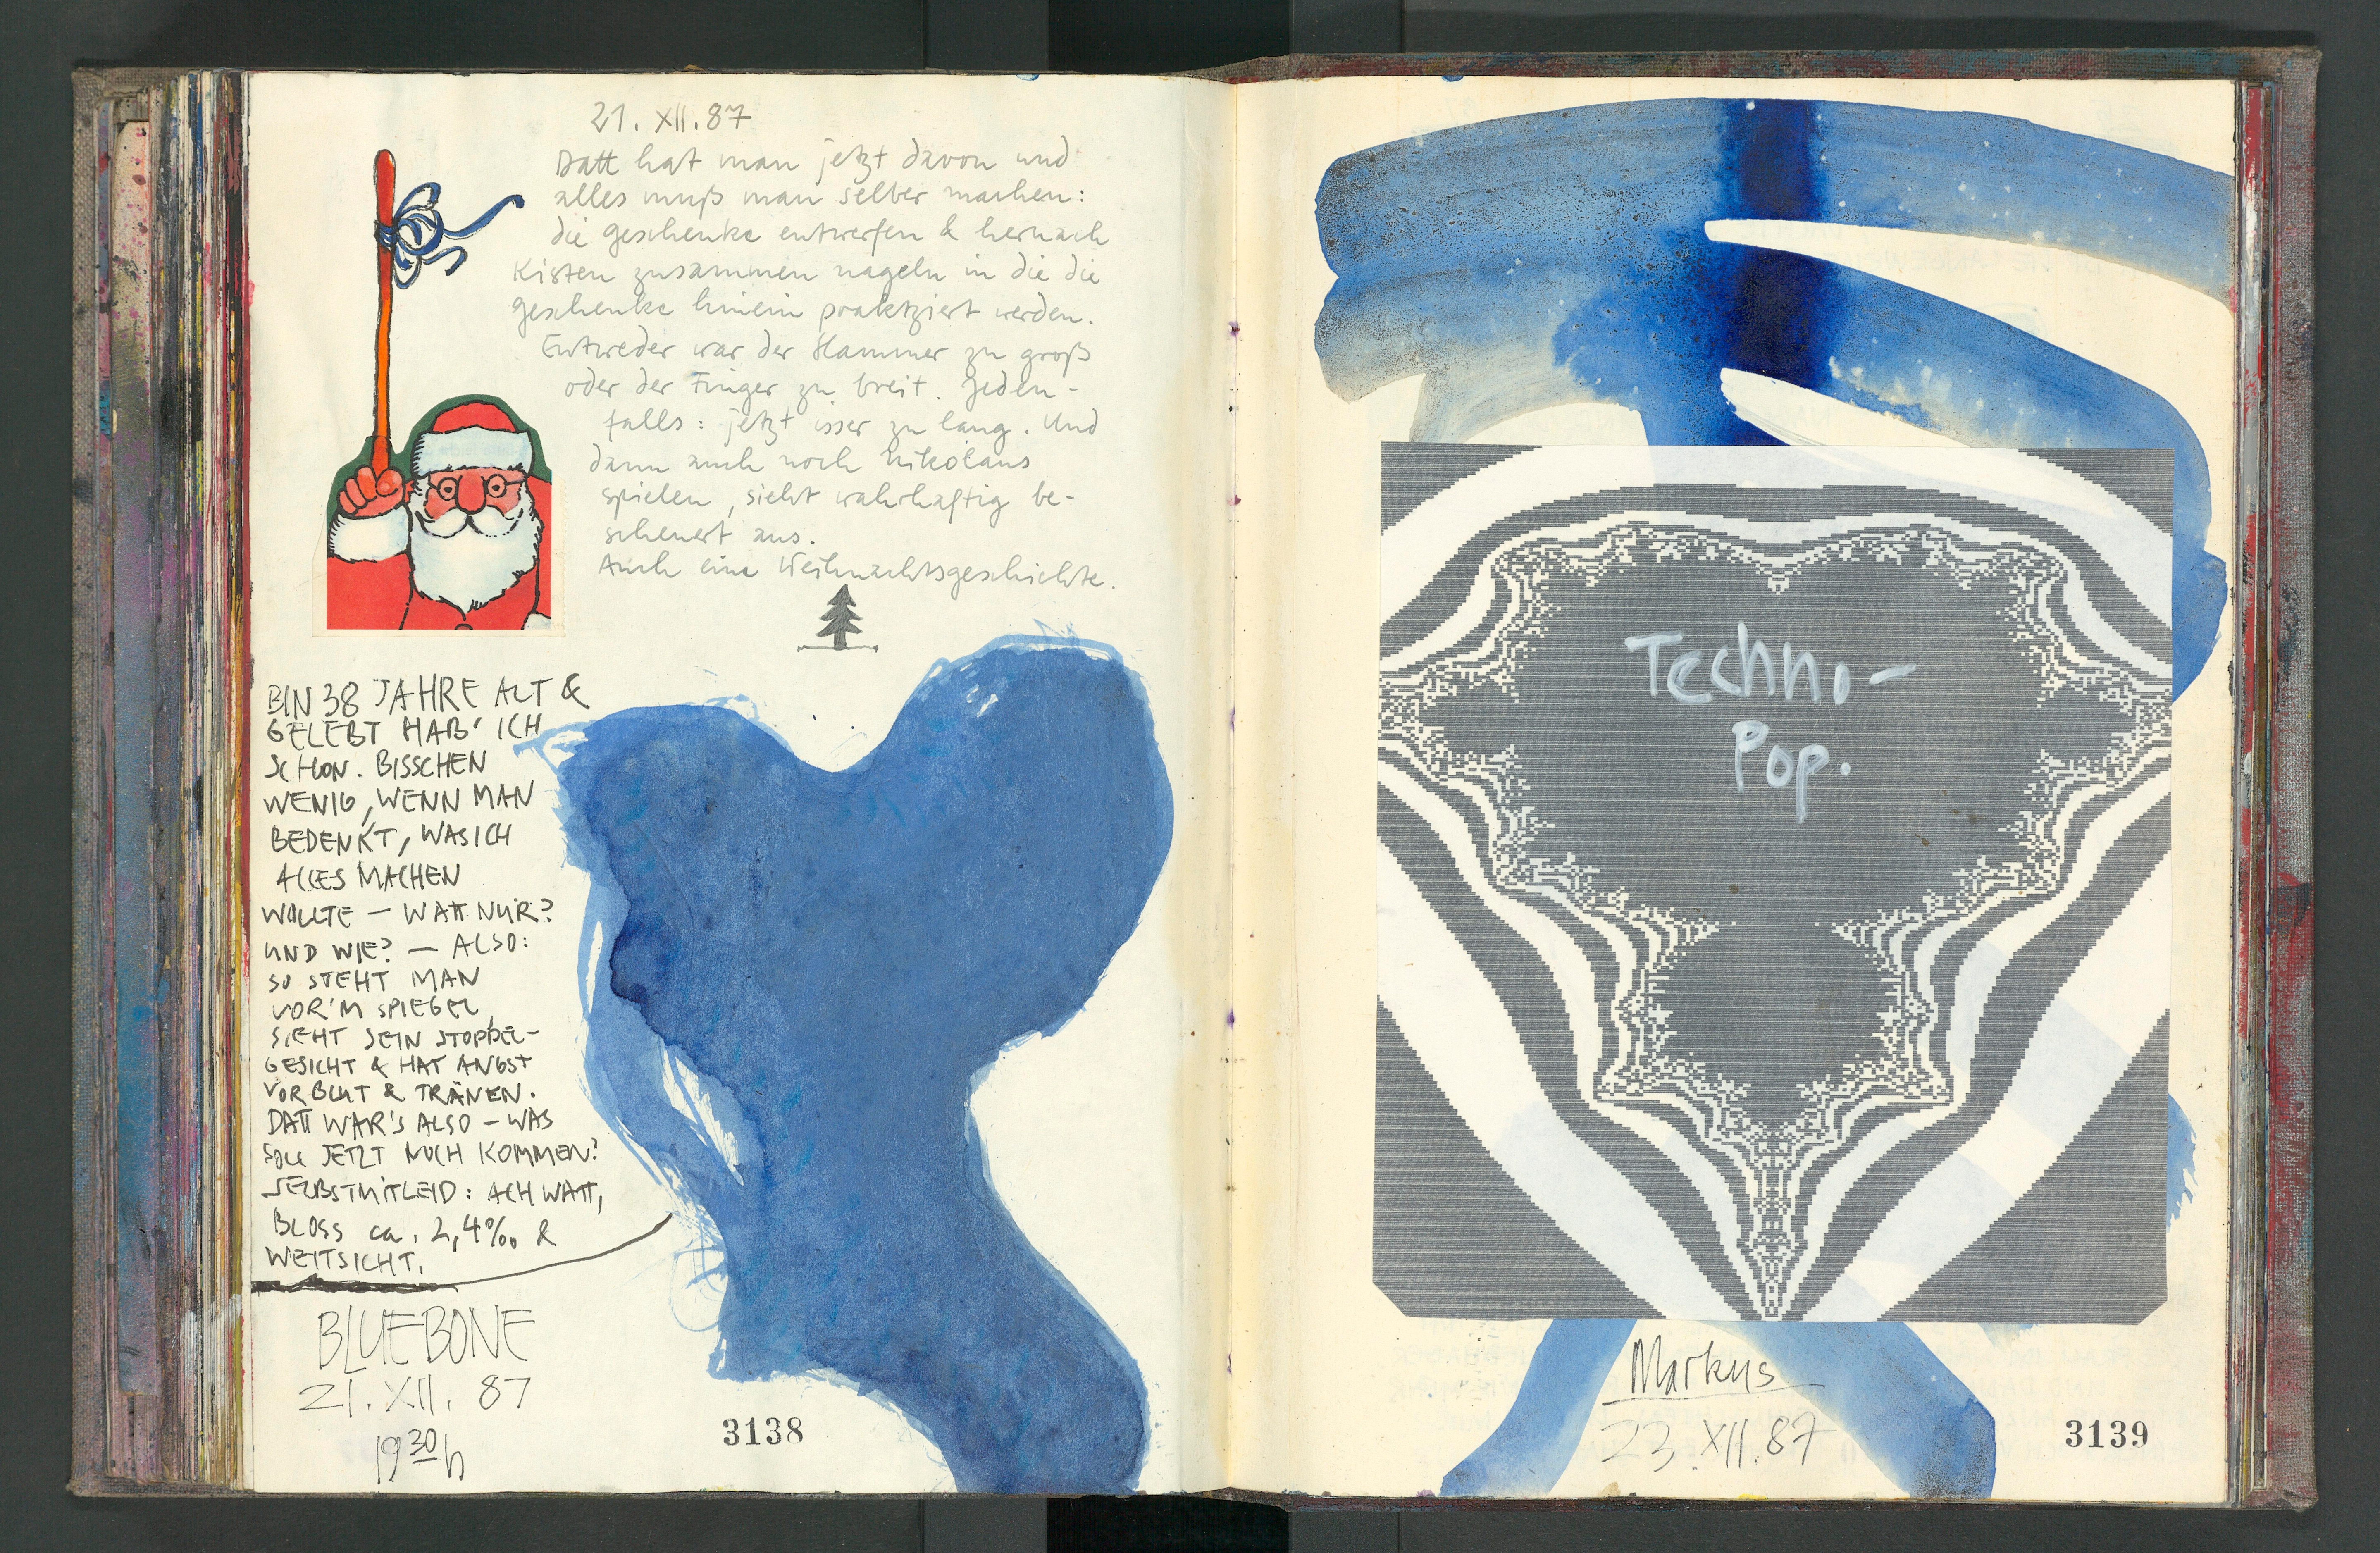 21. XII. 87
Datt hat man jetzt davon und
alles muß man selber machen:
die geschenke entwerfen & hernach
Kisten zusammen nageln in die die
geschenke hinein praktziert werden.
Entweder war der Hammer zu groß
oder der Finger zu breit. Jeden-
falls: jetzt isser zu lang. Und
dann auch noch Nikolaus
spielen, sieht wahrhaftig be-
scheuert aus.
Auch eine Weihnachtsgeschichte.
BIN 38 JAHRE ALT &
GELEBT HAB' ICH
SCHON. BISSCHEN
WENIG, WENN MAN
BEDENKT, WAS ICH
ALLES MACHEN
WOLLTE — WATT NUR?
UND WIE? — ALSO:
SO STEHT MAN
VOR'M SPIEGEL,
SIEHT SEIN STOPPEL-
GESICHT & HAT ANGST
VOR BLUT & TRÄNEN.
DATT WAR'S ALSO – WAS
SOLL JETZT NOCH KOMMEN?
SELBSTMITLEID: ACH WATT,
BLOSS ca. 2,4‰ &
WEITSICHT.
BLUEBONE
21. XII. 87
19 30 h
3138
Techno-
Pop.
Markus
23. XII. 87
3139